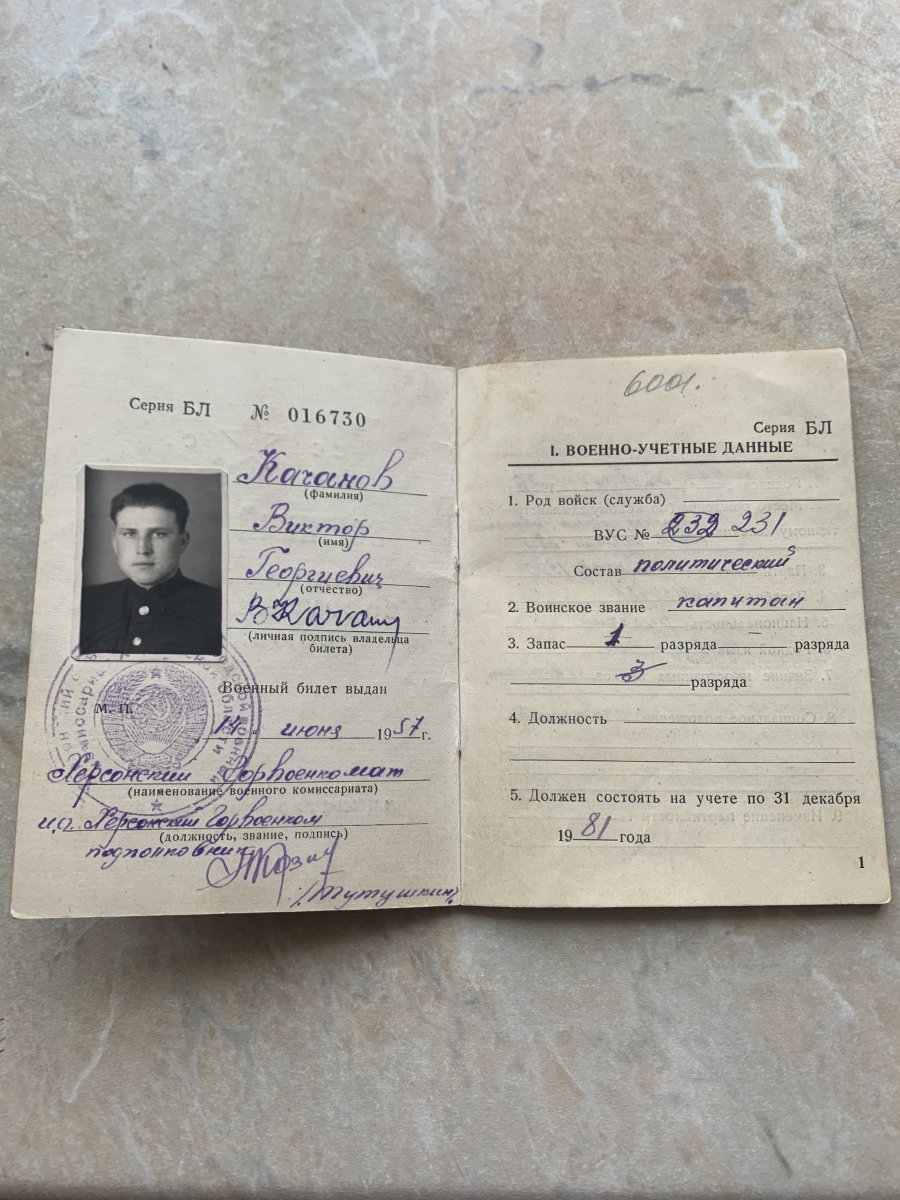 Серия БЛ № 016730
Качанов
(фамилия)
Виктор
(имя)
Георгиевич
(отчество)
(личная подпись владельца
билета)
Военный билет выдан
М. П.
14 " июня 1957 г.
Херсонский Горвоенкомат
(наименование военного комиссариата)
и.о. Херсонский Горвоенком
(должность, звание, подпись)
подполковник
/Тутушкин/
6001.
Серия БЛ
I. ВОЕННО-УЧЕТНЫЕ ДАННЫЕ
1. Род войск (служба)
ВУС № 232 231
Состав политический
2. Воинское звание капитан
3. Запас 1 разряда – разряда
3 разряда
4. Должность
5. Должен состоять на учете по 31 декабря
1981 года
1